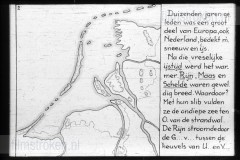 Duizenden jaren ge
leden was een groot
deel van Europa, ook
Nederland, bedekt m.
sneeuw en ijs.
Na die vreselijke
ijstijd werd het war.
mer. Rijn, Maas en
Schelde waren gewel
dig breed. Waardoor?
Met hun slib vulden
ze de ondiepe zee ten
O. van de strandwal.
De Rijn stroomde door
de G.. v... tussen de
heuvels van U. en V..